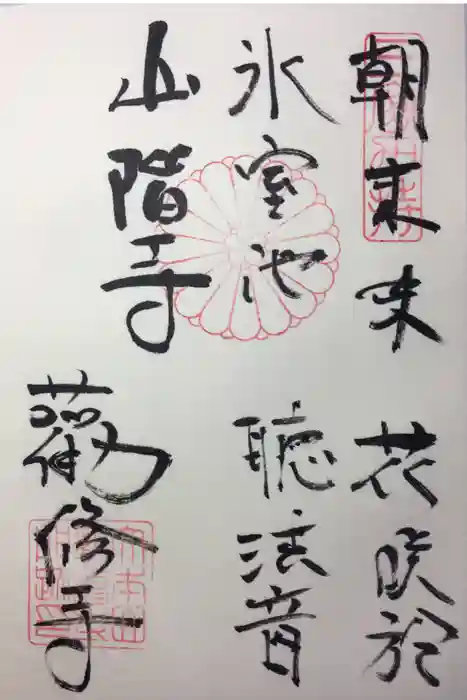 朝来味 花咲於
氷室池 聴法音
山階寺
勸修寺